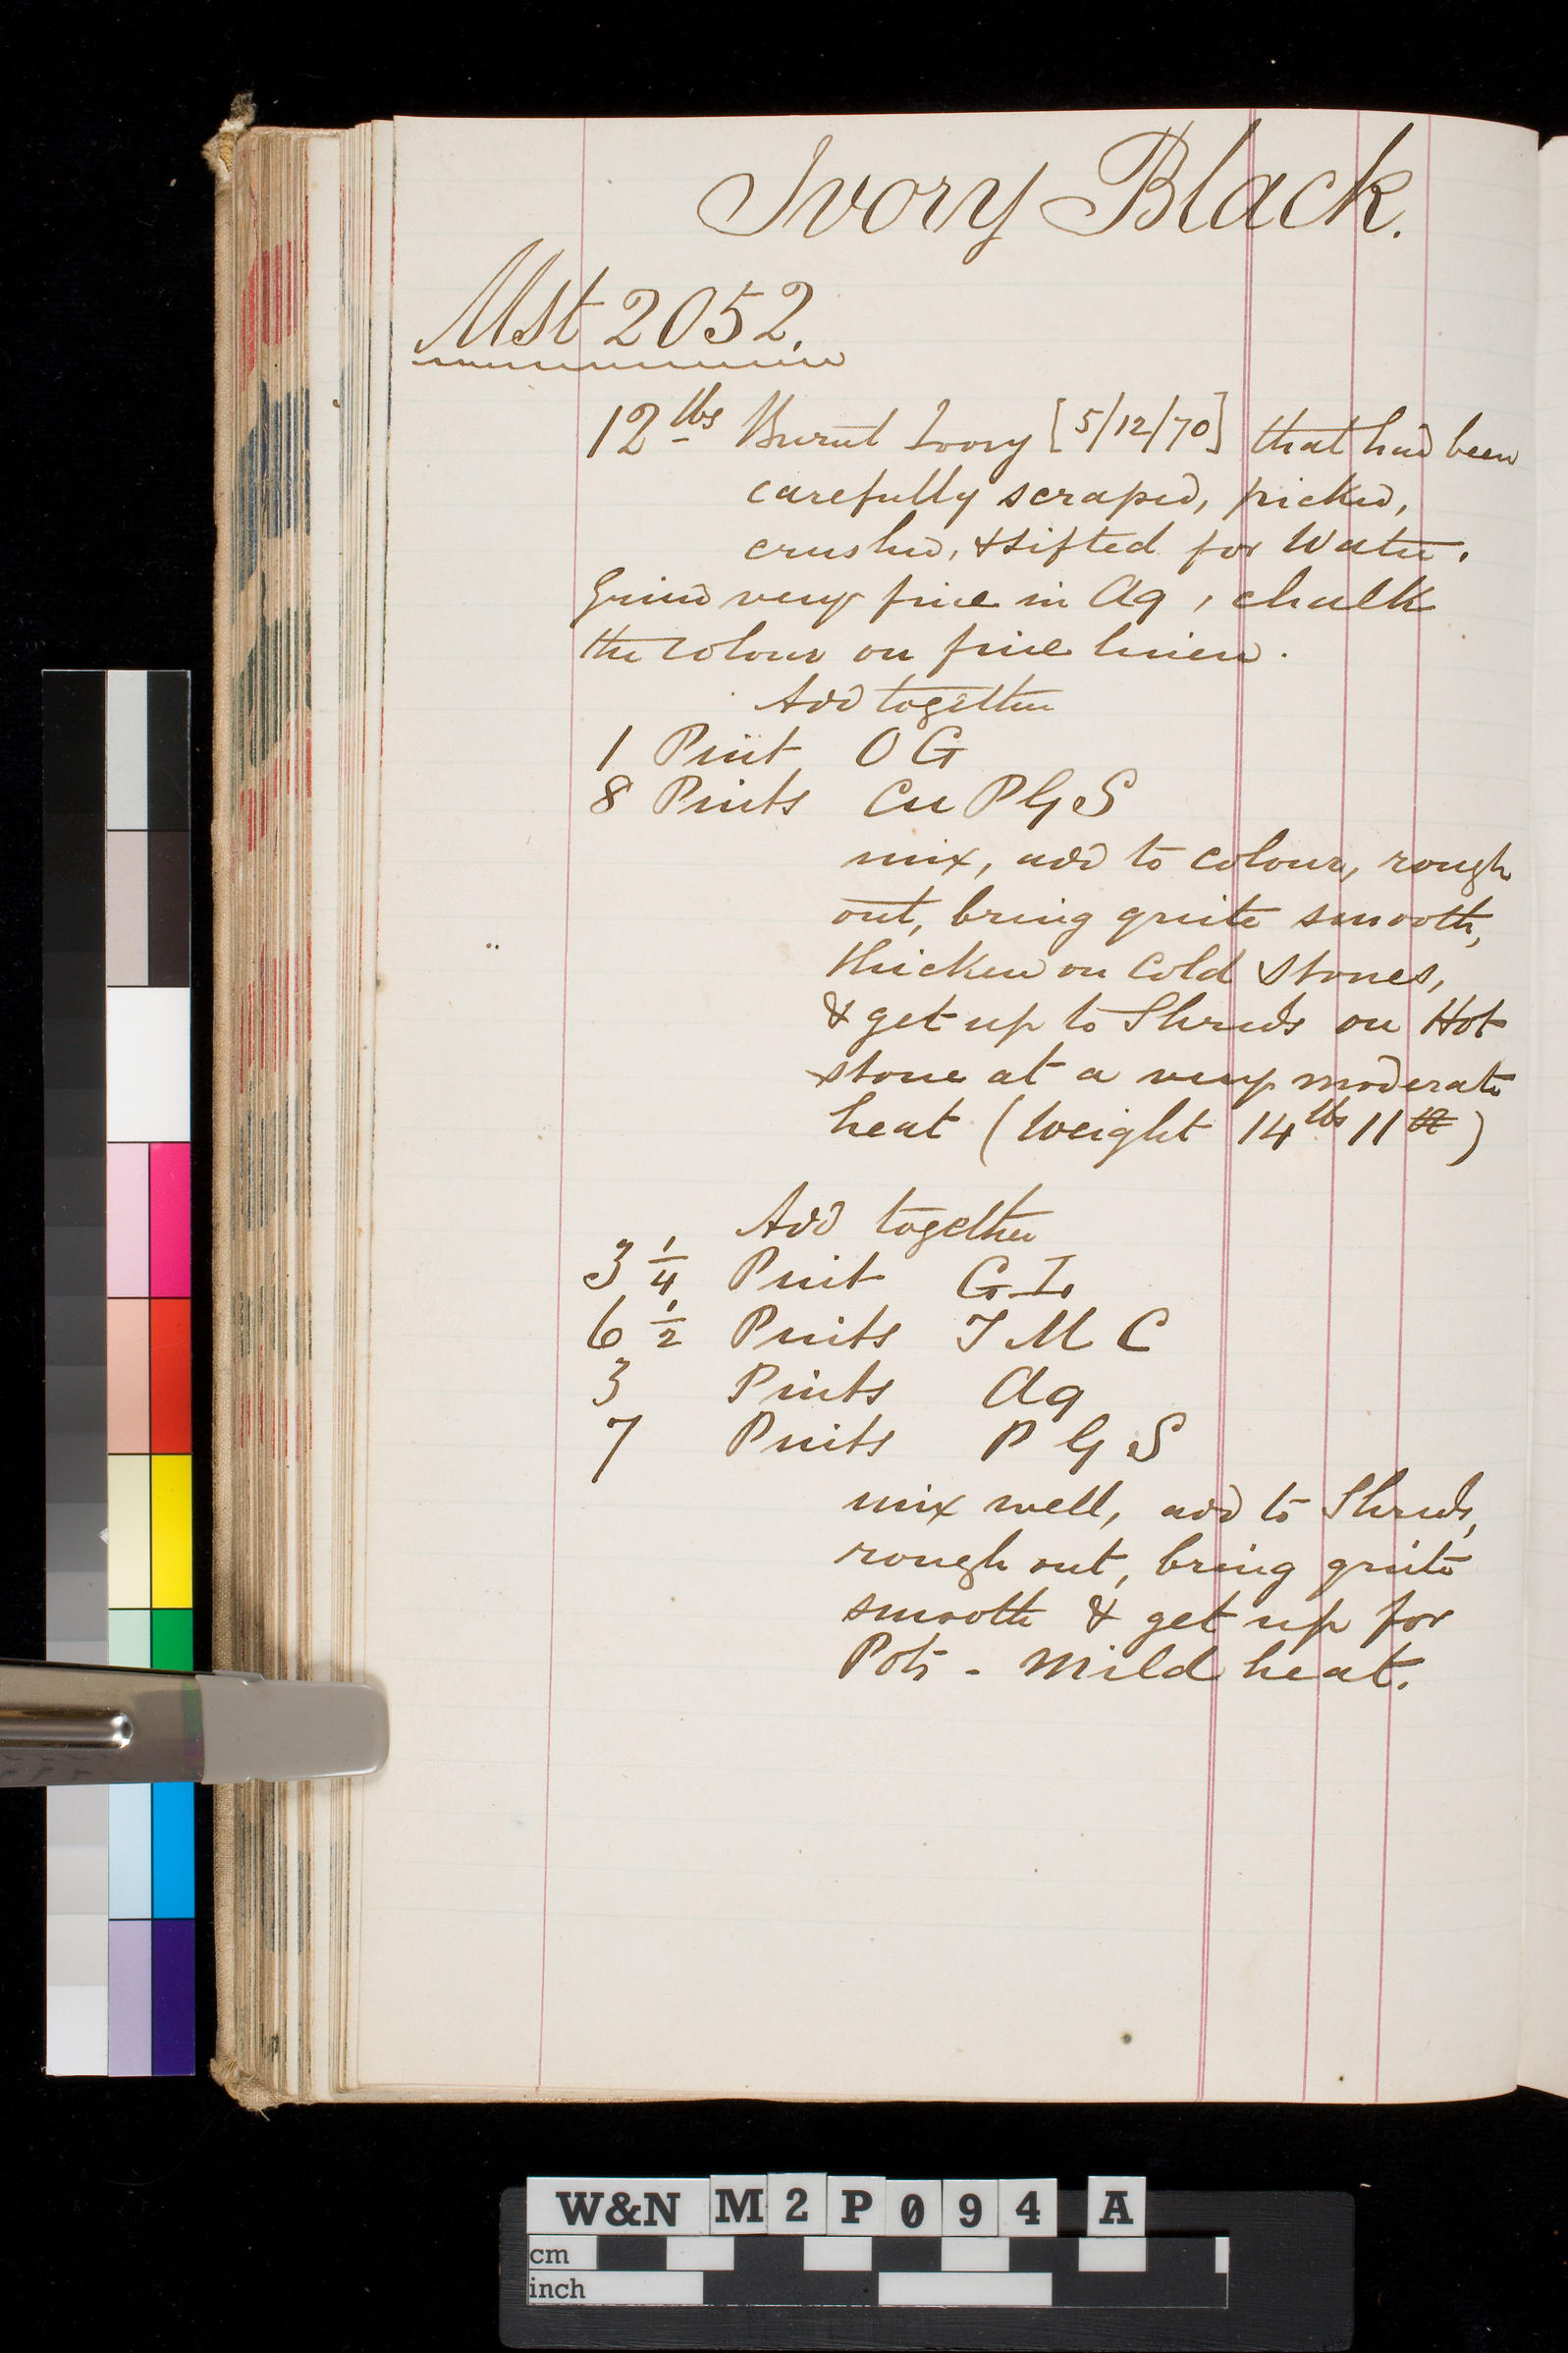 Ivory Black.
Mst 2052.
12 lbs Burnt Ivory [5/12/70] that had been
carefully scraped, picked,
crushed, & sifted for Water.
Grind very fine in Aq, chalk
the colour on fine linen.
Add together
1 Pint O G
8 Pints Cu P G S
mix, add to colour, rough
out, bring quite smooth,
thicken on Cold Stones,
& get up to Shreds on Hot
stone at a very moderate
heat (Weight 14 lbs 11)
Add together
3 1/4 Pint G I
6 1/2 Pints T M C
3 Pints Aq
7 Pints P G S
mix well, add to Shreds,
rough out, bring quite
smooth & get up for
Pots - Mild heat.
W&N M2P094 A
cm
inch